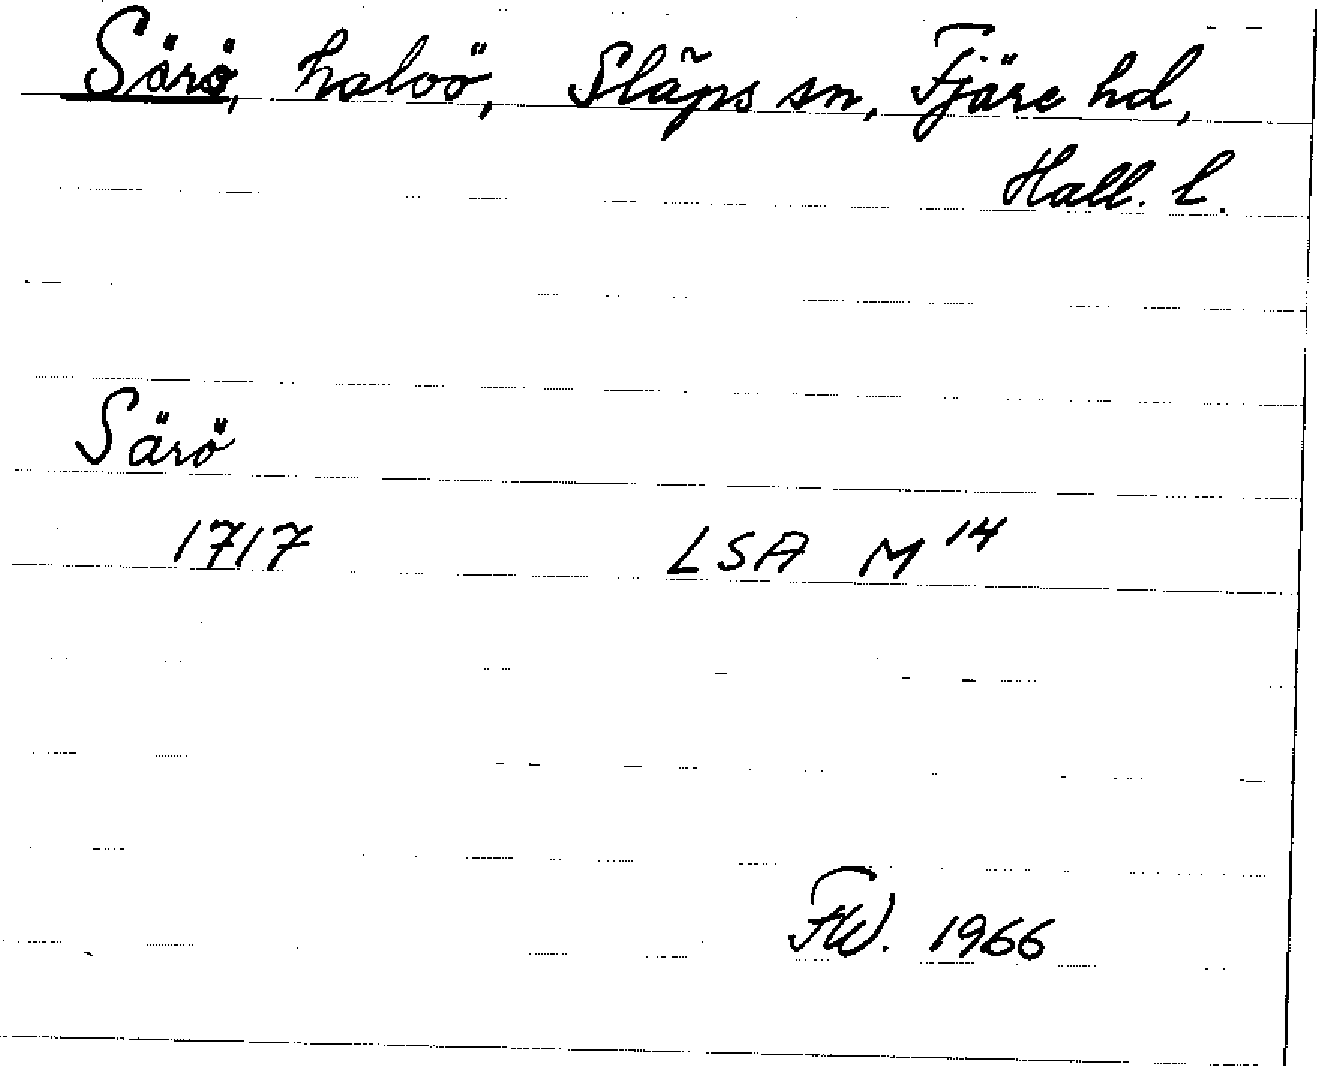 Särö, halvö, Släps sn, Fjäre hd,
Hall. l.
Särö
1717 LSA M 14
FW. 1966